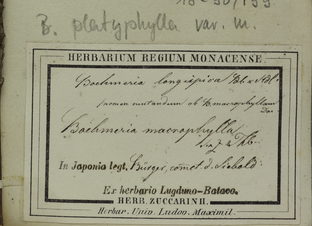 B. platyphylla var. m.
HERBARIUM REGIUM MONACENSE
Boehmeria longispica
nomen mutandum ob B. macrophyllam
Don
Boehmeria macrophylla
In Japonia legt. Bürger, comet. d. Siebold.
Ex herbario Lugduno-Batavo.
HERB. ZUCCARINII.
Herbar. Univ. Ludov. Maximil.